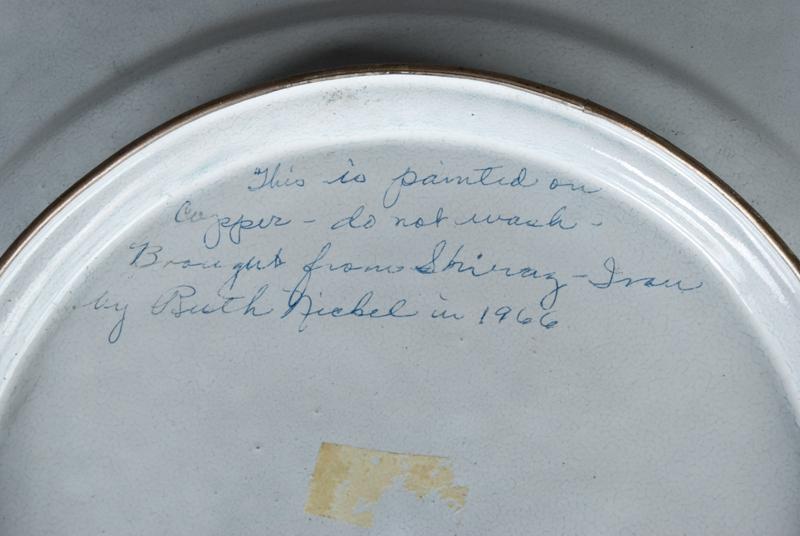 This is painted on
Copper - do not wash -
Brought from Shiraz - Iran
by Ruth Nickel in 1966